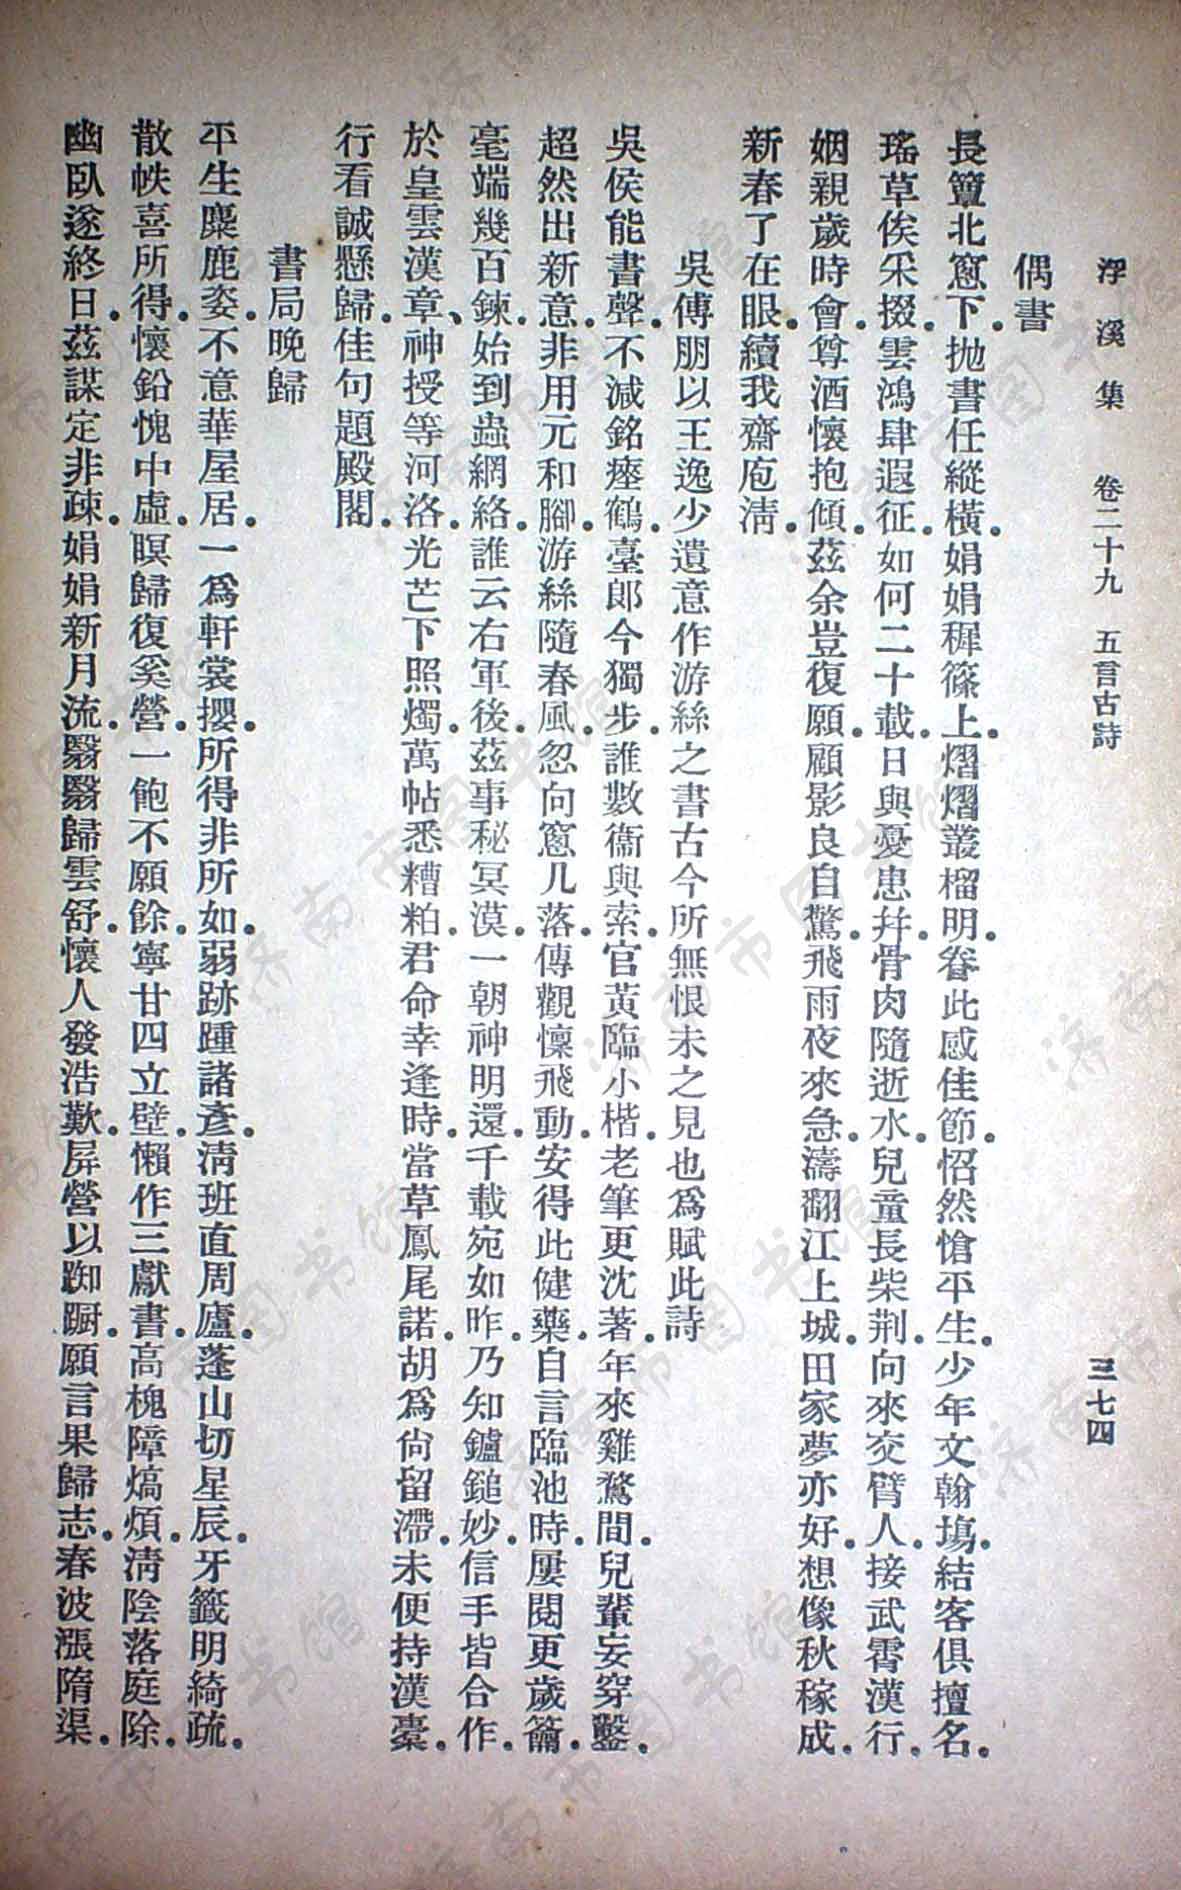 浮溪集 卷二十九 五言古詩 三七四
偶書
長簟北窻下。抛書任縱橫。娟娟穉篠上。熠熠叢榴明。眷此感佳節。怊然愴平生。少年文翰場。結客俱擅名。
瑤草俟采掇。雲鴻肆遐征。如何二十載。日與憂患幷。骨肉隨逝水。兒童長柴荆。向來交臂人。接武霄漢行。
姻親歲時會。尊酒懷抱傾。茲余豈復願。顧影良自驚。飛雨夜來急。濤翻江上城。田家夢亦好。想像秋稼成。
新春了在眼。續我齋庖淸。
吳傅朋以王逸少遺意作游絲之書古今所無恨未之見也爲賦此詩
吳侯能書聲。不減銘瘞鶴。臺郞今獨步。誰數衞與索。官黃臨小楷。老筆更沈著。年來雞鶩間。兒輩妄穿鑿。
超然出新意。非用元和腳。游絲隨春風。忽向窻几落。傳觀懍飛動。安得此健藥。自言臨池時。屢閱更歲籥。
毫端幾百鍊。始到蟲網絡。誰云右軍後。茲事秘冥漠。一朝神明還。千載宛如昨。乃知鑪鎚妙。信手皆合作。
於皇雲漢章、神授等河洛。光芒下照燭。萬帖悉糟粕。君命幸逢時。當草鳳尾諾。胡爲尙留滯。未便持漢橐。
行看誠懸歸。佳句題殿閣。
書局晚歸
平生麋鹿姿。不意華屋居。一爲軒裳攖。所得非所如。弱跡踵諸彥。淸班直周廬。蓬山切星辰。牙籤明綺疏。
散帙喜所得。懷鉛愧中虛。瞑歸復奚營。一飽不願餘。寧甘四立壁。懶作三獻書。高槐障熇煩。淸陰落庭除。
幽臥遂終日。茲謀定非疎。娟娟新月流。翳翳歸雲舒。懷人發浩歎。屏營以踟躕。願言果歸志。春波漲隋渠。